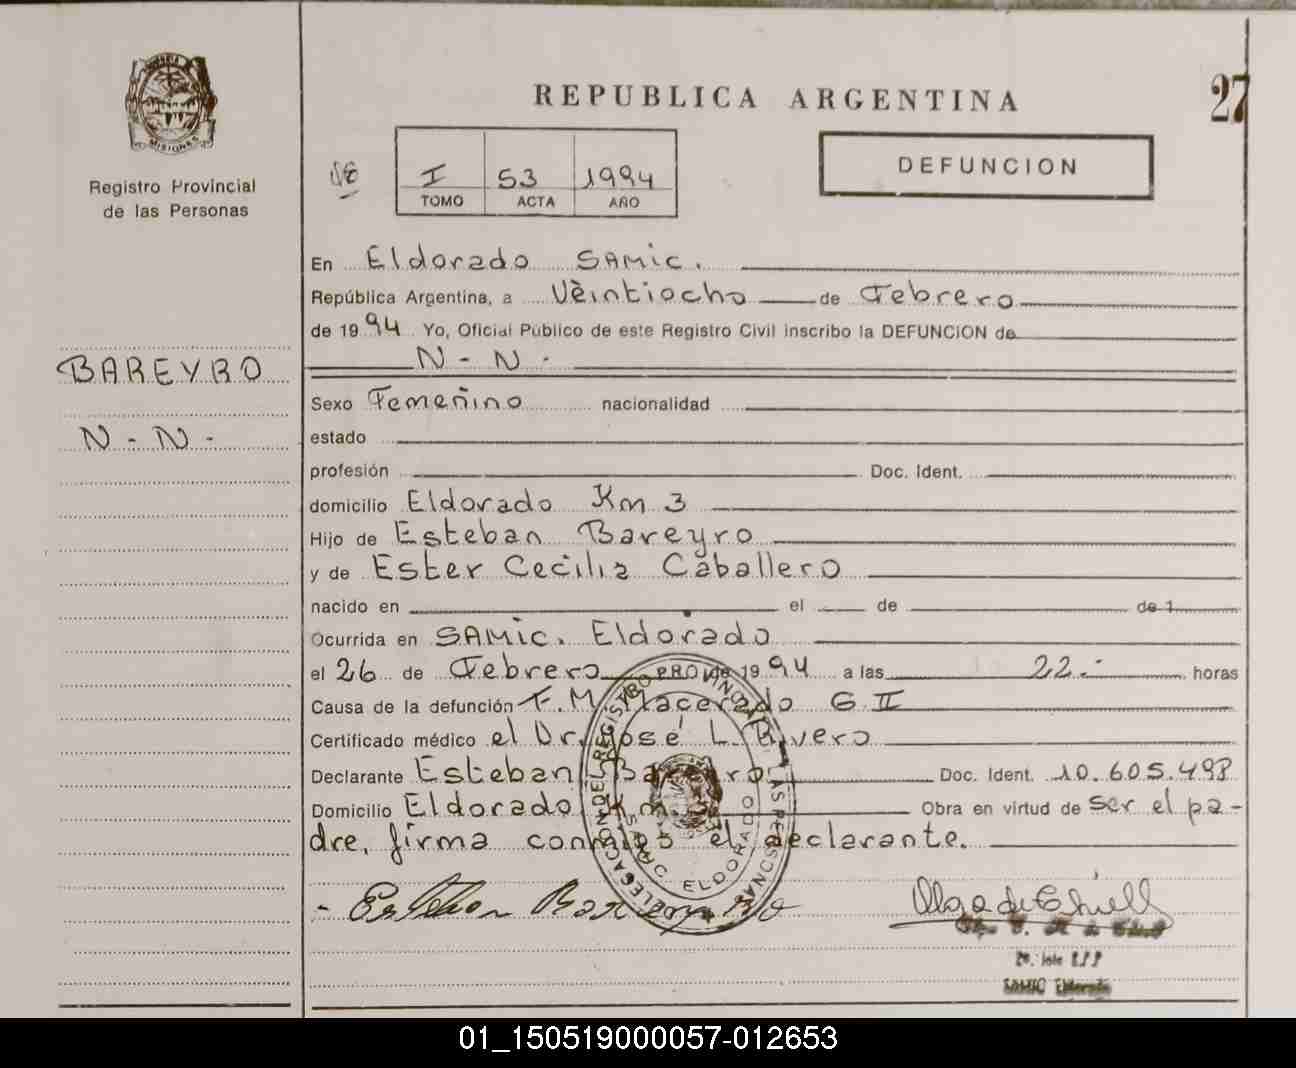 MISIONES
Registro Provincial
de las Personas
BAREYRO
N - N -
REPUBLICA ARGENTINA
27
I 53 1994
TOMO ACTA AÑO
DEFUNCION
En Eldorado SAMIC.
República Argentina, a Veintiocho de Febrero
de 1994 Yo, Oficial Público de este Registro Civil inscribo la DEFUNCION de
N - N -
Sexo Femenino nacionalidad
estado
profesión Doc. Ident.
domicilio Eldorado Km 3
Hijo de Esteban Bareyro
y de Ester Cecilia Caballero
nacido en el de de 1
Ocurrida en SAMIC. Eldorado
el 26 de Febrero de 1994 a las 22.- horas
Causa de la defunción F. M. Macerado G II
Certificado médico el Dr. José L. Rivero
Declarante Esteban Bareyro Doc. Ident. 10.605.498
Domicilio Eldorado Km 3 Obra en virtud de ser el pa-
dre, firma conmigo el declarante.
DELEGACION DEL REGISTRO PROVINCIAL DE LAS PERSONAS
SAMIC ELDORADO
- Esteban Bareyro
SAMIC Eldorado
01_150519000057-012653